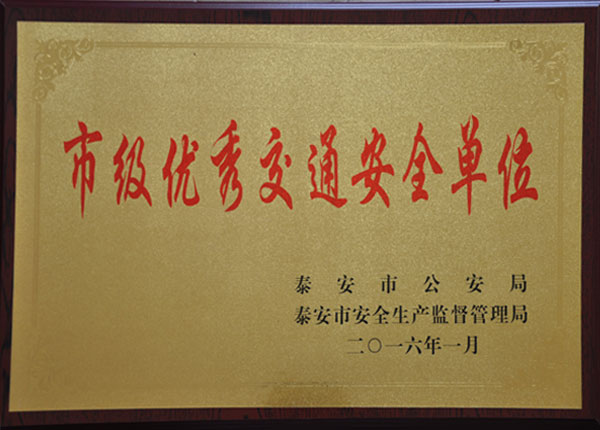 市级优秀交通安全单位
泰安市公安局
泰安市安全生产监督管理局
二〇一六年一月